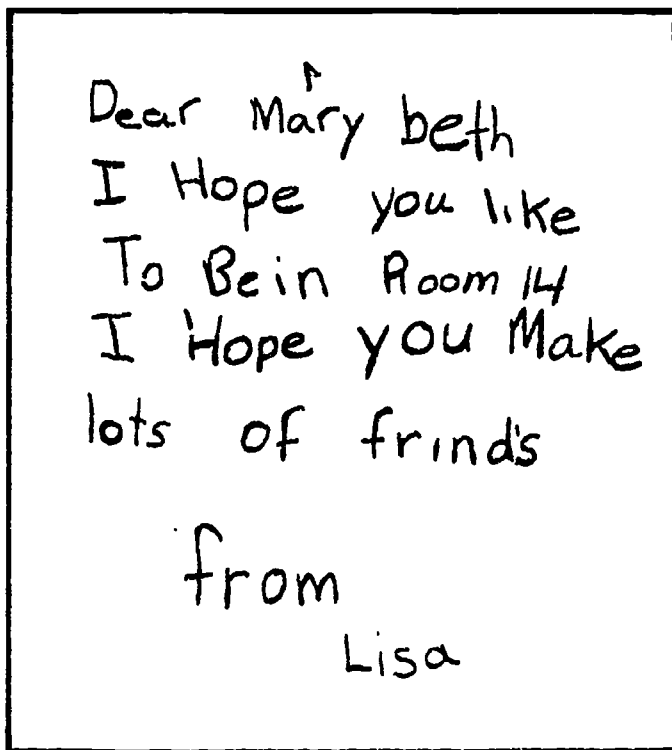 Dear Mary beth
I Hope you like
To Bein Room 14
I Hope you Make
lots of frind's
from
Lisa